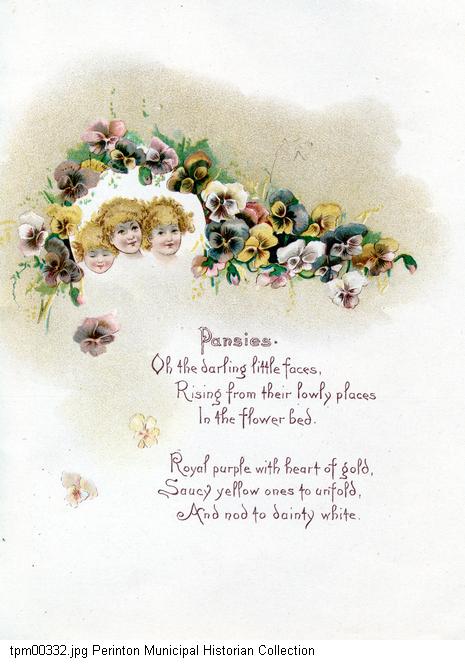 Pansies.
Oh the darling little faces,
Rising from their lowly places
In the flower bed.
Royal purple with heart of gold,
Saucy yellow ones to unfold,
And nod to dainty white.
tpm00332.jpg Perinton Municipal Historian Collection